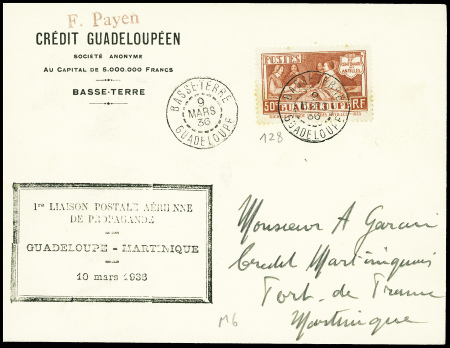 F. Payen
CRÉDIT GUADELOUPÉEN
SOCIÉTÉ ANONYME
AU CAPITAL DE 5.000.000 FRANCS
BASSE-TERRE
BASSE-TERRE
9
MARS
36
GUADELOUPE
POSTES
ANTILLES
50c GUADELOUPE RF
BASSE-TERRE
9
36
GUADELOUPE
128
1re LIAISON POSTALE AÉRIENNE
DE PROPAGANDE
GUADELOUPE - MARTINIQUE
10 mars 1936
Monsieur A Garcin
Credit Martiniquais
Fort-de-France
Martinique
M6